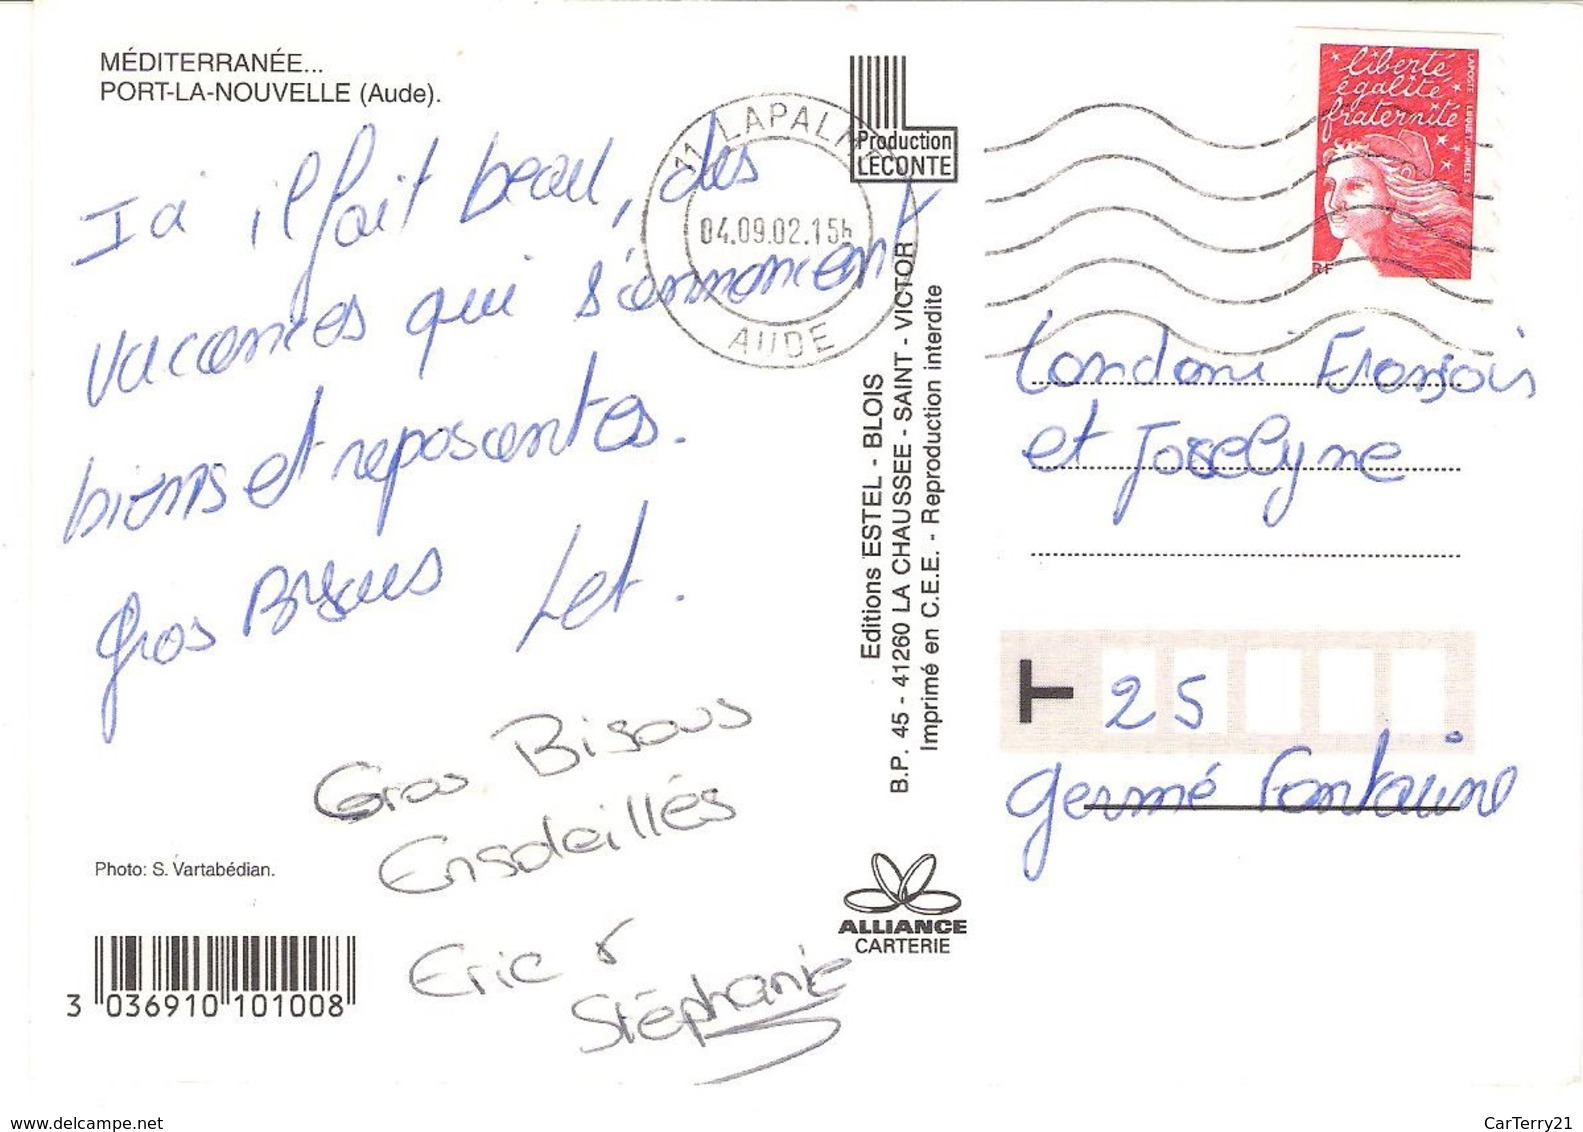 MÉDITERRANÉE...
PORT-LA-NOUVELLE (Aude).
Ici il fait beau, des
vacances qui s'ennoncent
biens et reposantes.
Gros Bisous
Gros Bisous
Ensoleillés
Eric &
Stéphanie
Photo: S. Vartabédian.
3 036910 101008
11 LAPALME
04.09.02.15h
AUDE
Production
LECONTE
Editions ESTEL - BLOIS
B.P. 45 - 41260 LA CHAUSSEE - SAINT - VICTOR
Imprimé en C.E.E. - Reproduction interdite
ALLIANCE
CARTERIE
liberté
égalité
fraternité
LAPOSTE LUQUET-JUMELET
RF
Londoni François
et Joselyne
25
germé fontaine
www.delcampe.net
CarTerry21